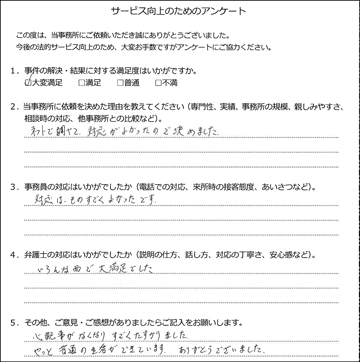 サービス向上のためのアンケート
この度は、当事務所にご依頼いただき誠にありがとうございました。
今後の法的サービス向上のため、大変お手数ですがアンケートにご協力ください。
1．事件の解決・結果に対する満足度はいかがですか。
☑大変満足 □満足 □普通 □不満
2．当事務所に依頼を決めた理由を教えてください（専門性、実績、事務所の規模、親しみやすさ、
相談時の対応、他事務所との比較など）。
ネットで調べて、対応がよかったので決めました
3．事務員の対応はいかがでしたか（電話での対応、来所時の接客態度、あいさつなど）。
対応は、ものすごくよかったです。
4．弁護士の対応はいかがでしたか（説明の仕方、話し方、対応の丁寧さ、安心感など）。
いろんな面で大満足でした
5．その他、ご意見・ご感想がありましたらご記入をお願いします。
心配事がなくなりすごくたすかりました
やっと普通の生活ができています。ありがとうございました。